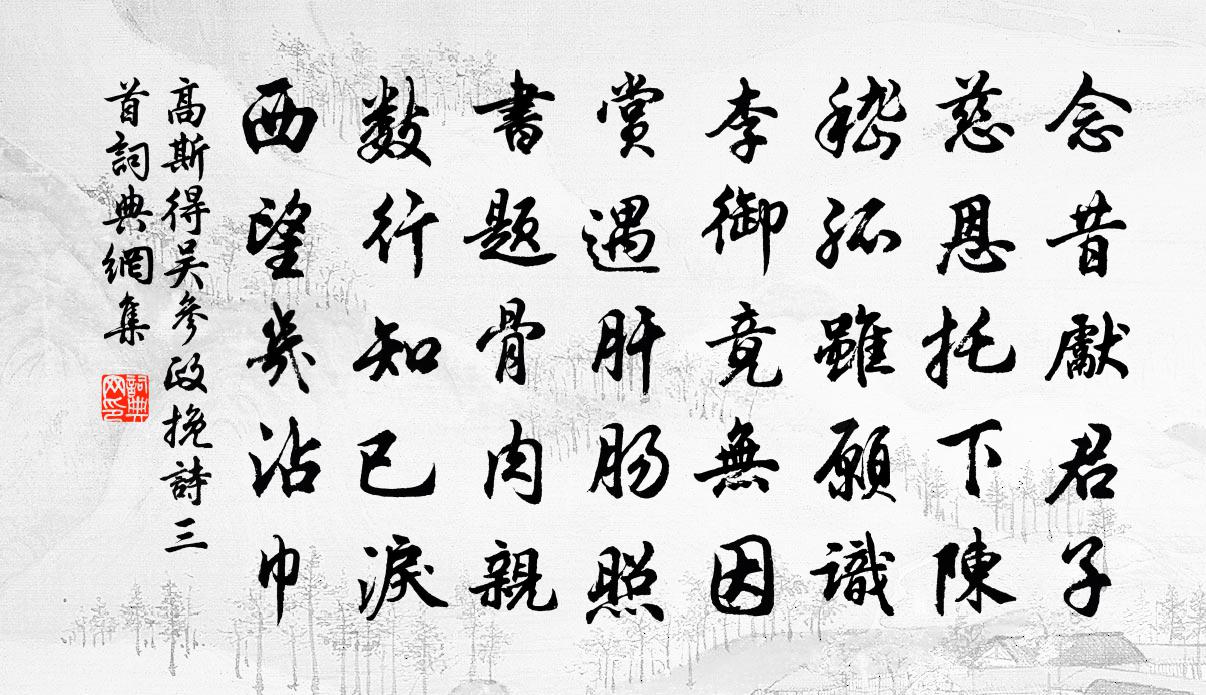 念昔獻君子
慈恩托下陳
嵇孤雖願識
李御竟無因
賞遇肝肠照
書題骨肉親
數行知已淚
西望幾沾巾
高斯得吴參政挽詩三
首詞典網集
詞典网印